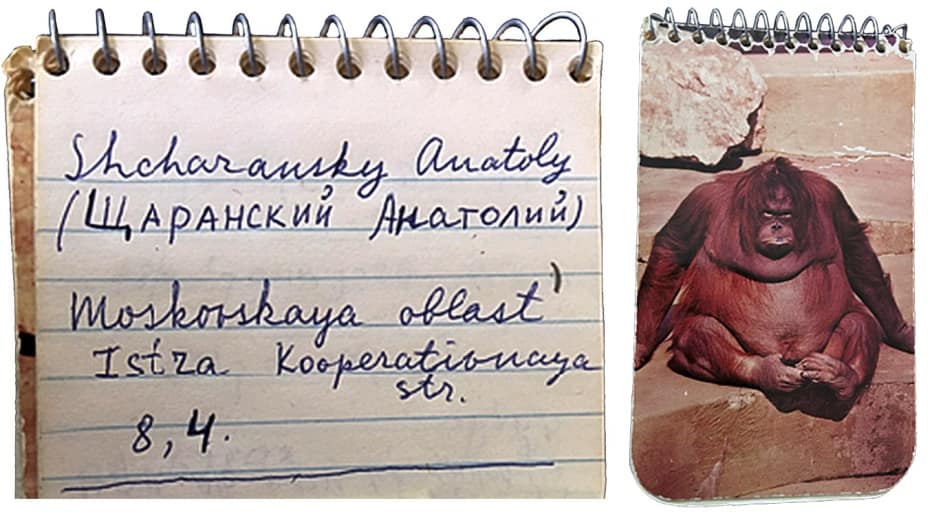 Shcharansky Anatoly
(ЩАРАНСКИЙ Анатолий)
Moskovskaya oblast'
Istra Kooperativnaya
str.
8, 4.